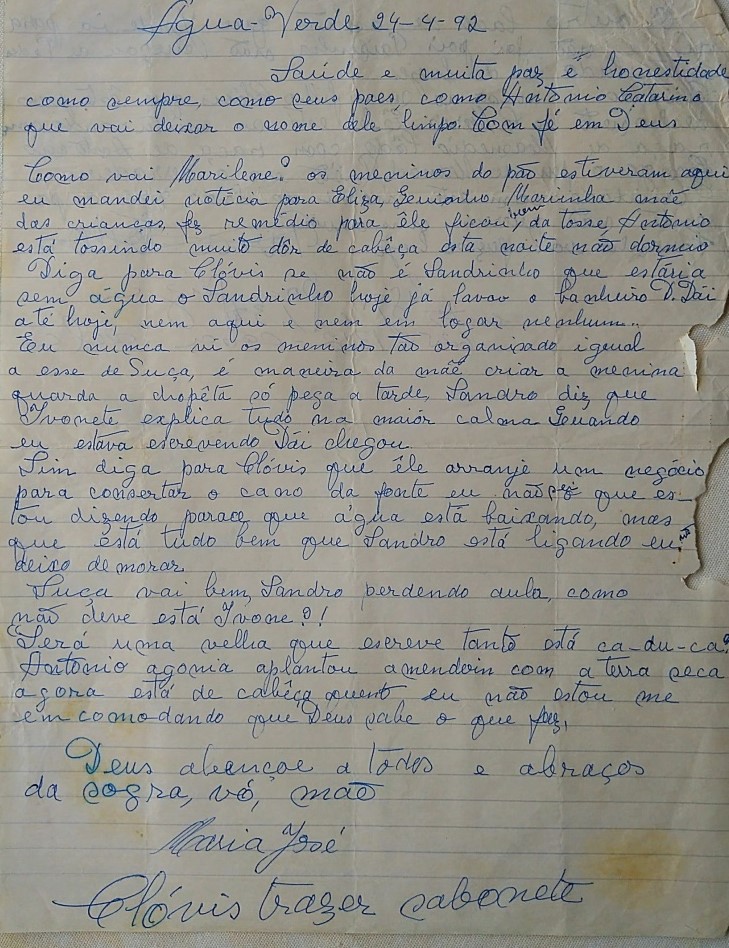 Água Verde 24-4-92
Saúde e muita paz é honestidade
como sempre, como seus paes, como Antonio Catarino
que vai deixar o nome dele limpo. Com fé em Deus
Como vai Marilene? os meninos do pão estiveram aqui
eu mandei notícia para Eliza, Marinha mãe
das crianças, fez remédio para êle ficou, bem da tosse, Antonio
está tossindo muito dôr de cabêça esta noite não dormio
Diga para Clóvis se não é Sandrinho que estária
sem água o Sandrinho hoje já lavou o banheiro D. Dái
até hoje, nem aqui e nem em logar nenhum..
Eu nunca vi os meninos tão organisado igual
a esse de Suça, é maneira da mãe criar a menina
guarda a chopêta só pega a tarde, Sandro diz que
Ivonete explica tudo na maiór calma Quando
eu estava escrevendo Dái chegou.
Sim diga para Clóvis que êle arranje um negócio
para consertar o cano da fonte eu não sei o que es-
tou dizendo parace que água está baixando, mas
que está tudo bem que Sandro está ligando eu não
deixo demorar
Suça vai bem, Sandro perdendo aula, como
não deve está Ivone?!
"Será uma velha que escreve tanto está ca-du-ca?
Antonio agonia aplantou amendoin com a terra seca
agora está de cabêça quent eu não estou me
emcomodando que Deus sabe o que faz,
Deus abençoe a todos e abraços
da sogra, vó, mãe
Maria José
Clóvis trazer sabonete